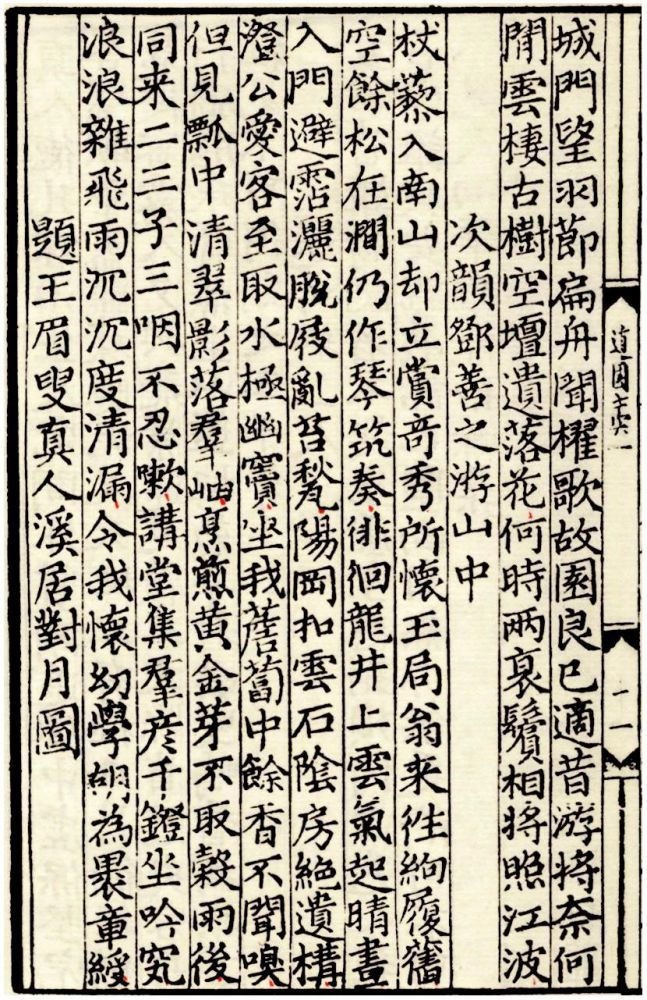 城門望羽節扁舟聞櫂歌故園良已適昔游將奈何
閒雲棲古樹空壇遺落花何時兩衰鬢相將照江波
次韻鄧善之游山中
杖藜入南山却立賞竒秀所懷玉局翁来往絇履舊
空餘松在澗仍作琴筑奏徘徊龍井上雲氣起晴晝
入門避霑灑脫屐亂苔甃陽岡扣雲石陰房絶遺構
澄公愛客至取水極幽竇坐我薝蔔中餘香不聞嗅
但見瓢中清翠影落羣岫烹煎黄金芽不取穀雨後
同来二三子三咽不忍嗽講堂集羣彦千鐙坐吟究
浪浪雜飛雨沉沉度清漏令我懷幼學胡為裹章綬
題王眉叟真人溪居對月圖
道園
十一